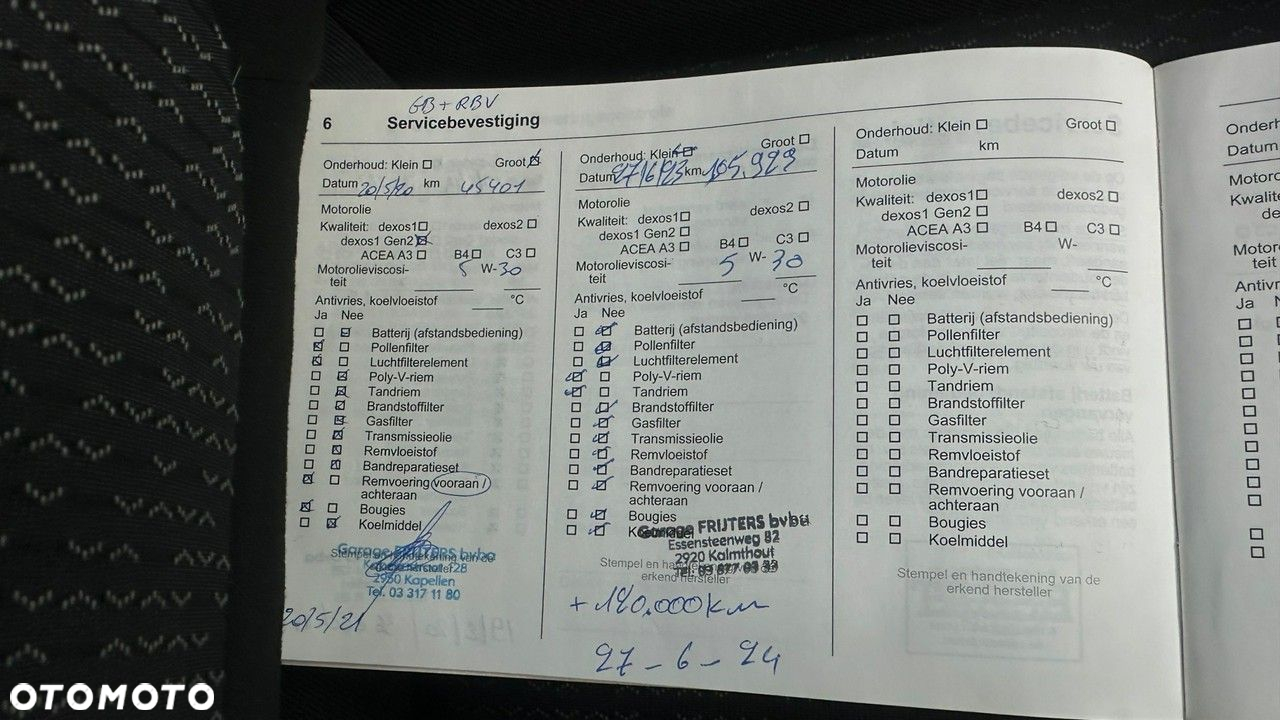 GB + RBV
6 Servicebevestiging
Onderhoud: Klein ☐ Groot ☒
Datum 20/5/20 km 45401
Motorolie
Kwaliteit: dexos1 ☐ dexos2 ☐
dexos1 Gen2 ☒
ACEA A3 ☐ B4 ☐ C3 ☐
Motorolieviscosi-
teit 5 W- 30
Antivries, koelvloeistof ____ °C
Ja Nee
☐ ☒ Batterij (afstandsbediening)
☒ ☐ Pollenfilter
☒ ☐ Luchtfilterelement
☐ ☒ Poly-V-riem
☐ ☒ Tandriem
☐ ☒ Brandstoffilter
☐ ☒ Gasfilter
☐ ☒ Transmissieolie
☐ ☒ Remvloeistof
☐ ☒ Bandreparatieset
☒ ☐ Remvoering vooraan /
achteraan
☒ ☐ Bougies
☐ ☒ Koelmiddel
Garage FRIJTERS bvba
2950 Kapellen
Tel. 03 317 11 80
20/5/21
Onderhoud: Klein ☒ Groot ☐
Datum 27/6/23 km 105.923
Motorolie
Kwaliteit: dexos1 ☐ dexos2 ☐
dexos1 Gen2 ☐
ACEA A3 ☐ B4 ☐ C3 ☐
Motorolieviscosi-
teit 5 W- 30
Antivries, koelvloeistof ____ °C
Ja Nee
☐ ☒ Batterij (afstandsbediening)
☐ ☒ Pollenfilter
☐ ☒ Luchtfilterelement
☒ ☐ Poly-V-riem
☒ ☐ Tandriem
☐ ☒ Brandstoffilter
☐ ☒ Gasfilter
☐ ☒ Transmissieolie
☐ ☒ Remvloeistof
☐ ☒ Bandreparatieset
☐ ☒ Remvoering vooraan /
achteraan
☐ ☒ Bougies
☐ ☒ Koelmiddel
Garage FRIJTERS bvba
Essensteenweg 82
2920 Kalmthout
Stempel en handtekening van de
erkend hersteller
+ 120.000 km
27 - 6 - 24
Onderhoud: Klein ☐ Groot ☐
Datum km
Motorolie
Kwaliteit: dexos1 ☐ dexos2 ☐
dexos1 Gen2 ☐
ACEA A3 ☐ B4 ☐ C3 ☐
Motorolieviscosi- W-
teit
Antivries, koelvloeistof ____ °C
Ja Nee
☐ ☐ Batterij (afstandsbediening)
☐ ☐ Pollenfilter
☐ ☐ Luchtfilterelement
☐ ☐ Poly-V-riem
☐ ☐ Tandriem
☐ ☐ Brandstoffilter
☐ ☐ Gasfilter
☐ ☐ Transmissieolie
☐ ☐ Remvloeistof
☐ ☐ Bandreparatieset
☐ ☐ Remvoering vooraan /
achteraan
☐ ☐ Bougies
☐ ☐ Koelmiddel
Stempel en handtekening van de
erkend hersteller
Datum
Ja
OTOMOTO